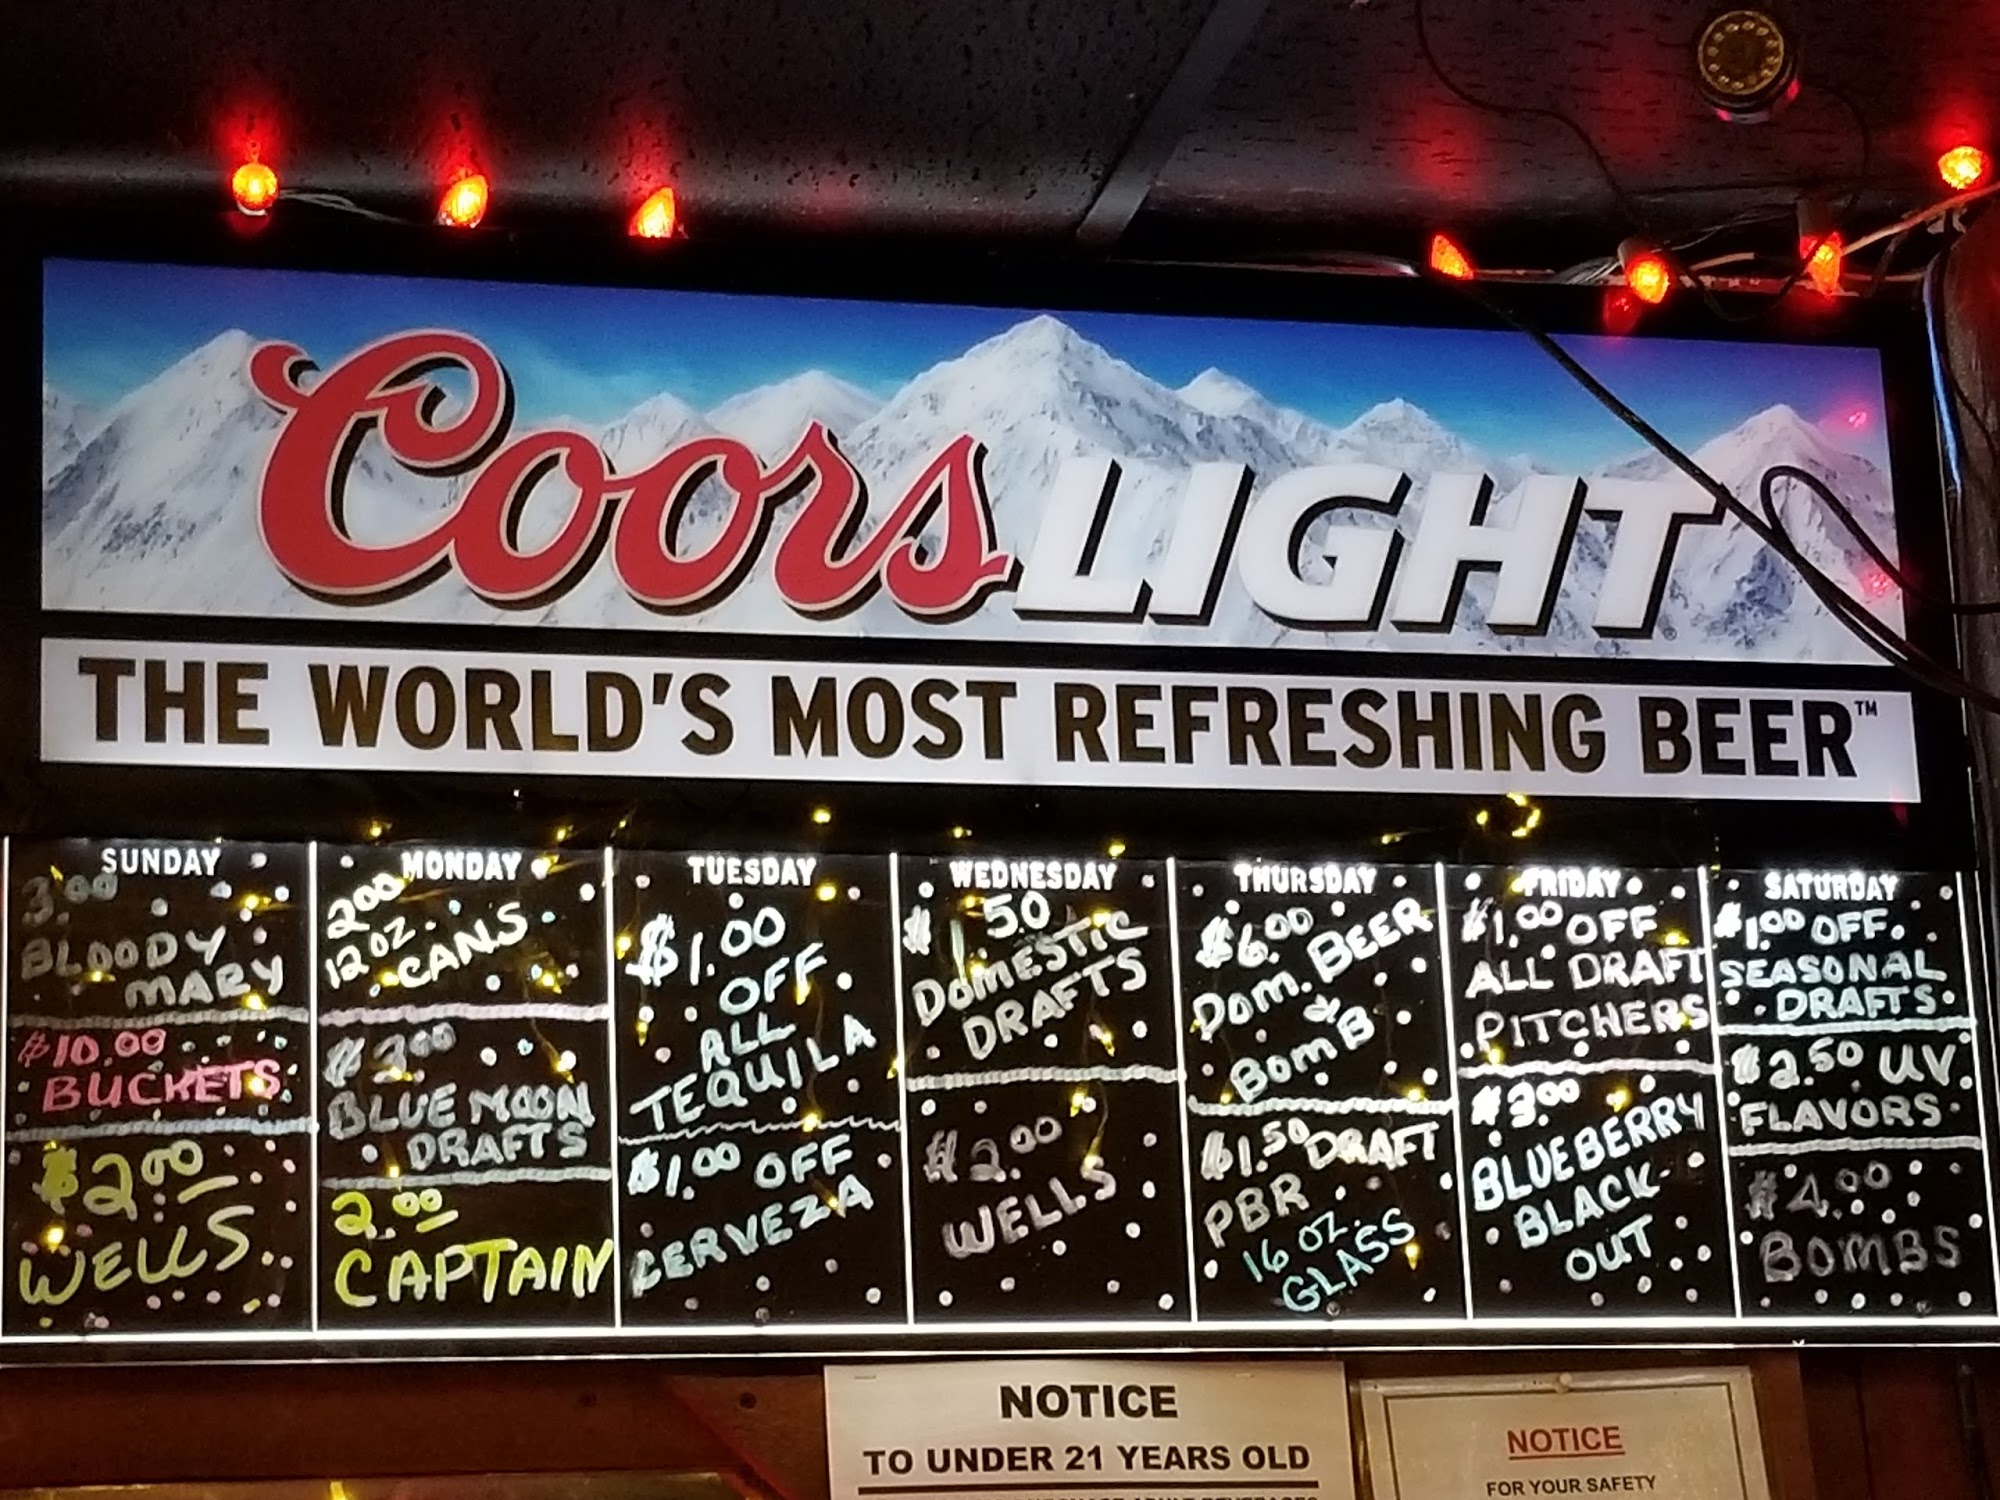 Coors LIGHT
THE WORLD'S MOST REFRESHING BEER™
SUNDAY
3.00
BLOODY
MARY
$10.00
BUCKETS
$2.00
WELLS
MONDAY
2.00
12 OZ.
CANS
$3.00
BLUE MOON
DRAFTS
2.00
CAPTAIN
TUESDAY
$1.00
OFF
ALL
TEQUILA
$1.00 OFF
CERVEZA
WEDNESDAY
$ .50
DOMESTIC
DRAFTS
$2.00
WELLS
THURSDAY
$6.00
DOM. BEER
&
BOMB
$1.50 DRAFT
PBR
16 OZ.
GLASS
FRIDAY
$1.00 OFF
ALL DRAFT
PITCHERS
$3.00
BLUEBERRY
BLACK-
OUT
SATURDAY
$1.00 OFF
SEASONAL
DRAFTS
$2.50 UV
FLAVORS
$4.00
BOMBS
NOTICE
TO UNDER 21 YEARS OLD
NOTICE
FOR YOUR SAFETY